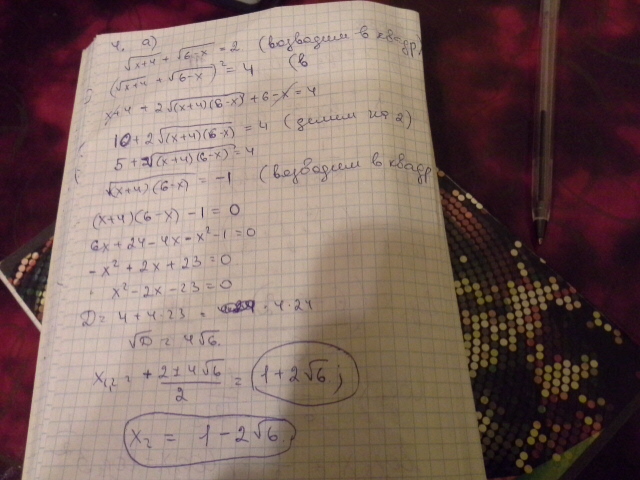 4. а)
√x+4 + √6-x = 2 (возводим в квадр)
(√x+4 + √6-x)² = 4 (в
x+4 + 2√(x+4)(6-x) + 6-x = 4
10 + 2√(x+4)(6-x) = 4 (делим на 2)
5 + √(x+4)(6-x) = 4
√(x+4)(6-x) = -1 (возводим в квадр
(x+4)(6-x) - 1 = 0
6x + 24 - 4x - x² - 1 = 0
-x² + 2x + 23 = 0
x² - 2x - 23 = 0
D = 4 + 4·23 = = 4·24
√D = 4√6.
x₁,₂ = + 2±4√6 / 2 = 1 + 2√6 ;
x₂ = 1 - 2√6.